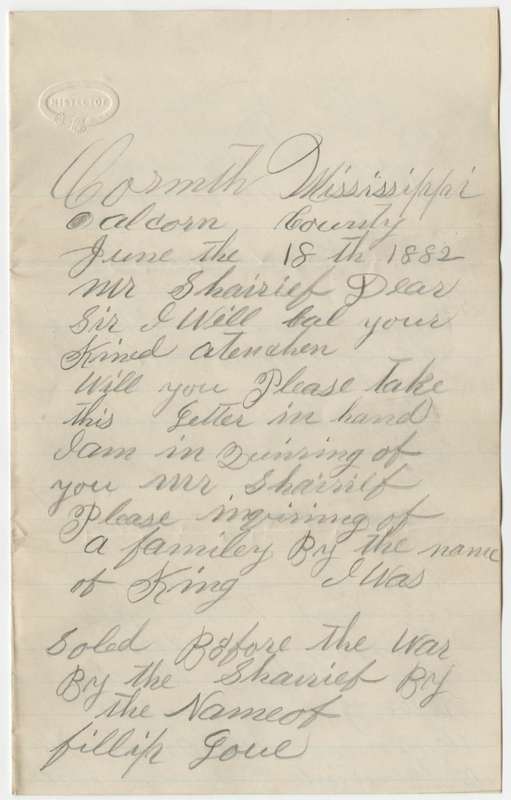 Cornith Mississippi
alcorn County
June the 18 th 1882
Mr Shairief Dear
Sir I Will Cal your
Kined atenchen
Will you Please take
this Letter in hand
I am in Quiring of
you Mr Shairief
Please inquiring of
a familey By the name
of King I Was
Soled Before the War
By the Shairief By
the Name of
fillip Goue